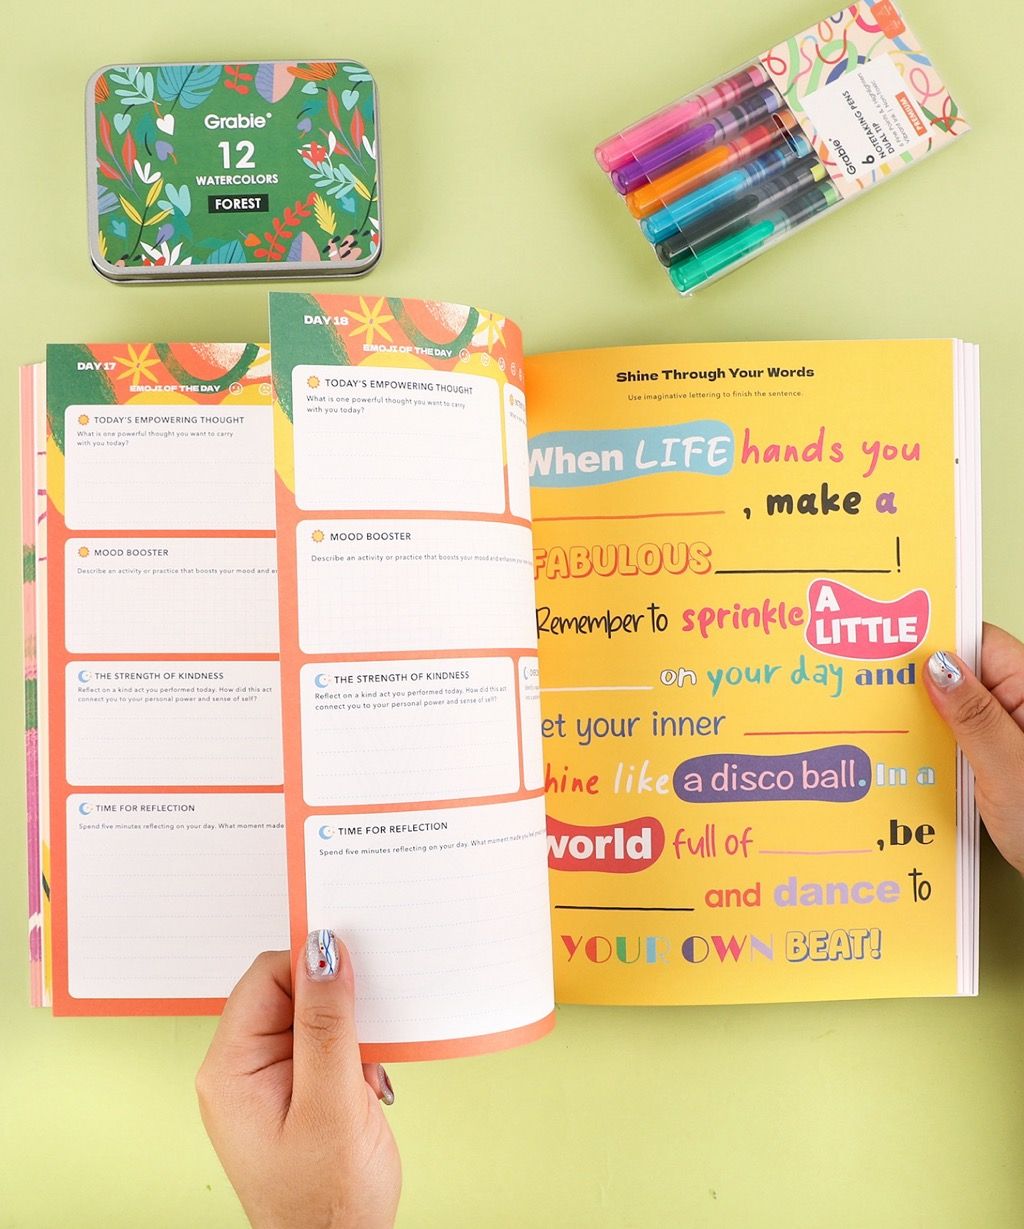 Grabie®
12
WATERCOLORS
FOREST
Grabie®
6
NOTETAKING PENS
DUAL TIP
PREMIUM
DAY 17
EMOJI OF THE DAY
TODAY'S EMPOWERING THOUGHT
What is one powerful thought you want to carry
with you today?
MOOD BOOSTER
Describe an activity or practice that boosts your mood and
THE STRENGTH OF KINDNESS
Reflect on a kind act you performed today. How did this act
connect you to your personal power and sense of self?
TIME FOR REFLECTION
Spend five minutes reflecting on your day. What moment made
DAY 18
EMOJI OF THE DAY
TODAY'S EMPOWERING THOUGHT
What is one powerful thought you want to carry
with you today?
MOOD BOOSTER
Describe an activity or practice that boosts your mood and
THE STRENGTH OF KINDNESS
Reflect on a kind act you performed today. How did this act
connect you to your personal power and sense of self?
TIME FOR REFLECTION
Spend five minutes reflecting on your day. What moment made you feel
Shine Through Your Words
Use imaginative lettering to finish the sentence.
When LIFE hands you
, make a
FABULOUS !
Remember to sprinkle A LITTLE
on your day and
et your inner
hine like a disco ball. In a
world full of , be
and dance to
YOUR OWN BEAT!